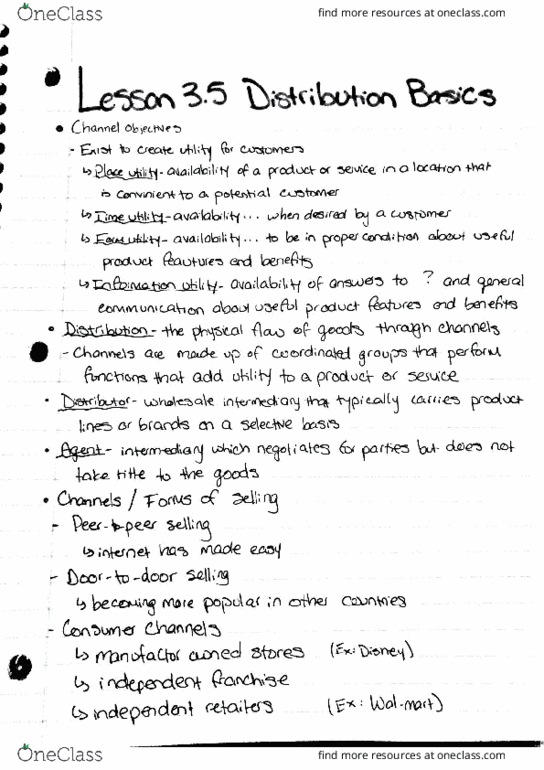 OneClass find more resources at oneclass.com
Lesson 3.5 Distribution Basics
• Channel Objectives
- Exist to create utility for customers
↳ Place utility - availability of a product or service in a location that
is convinient to a potential customer
↳ Time utility - availability... when desired by a customer
↳ Form utility - availability... to be in proper condition about useful
product feautures and benefits
↳ Information utility - availability of answers to ? and general
communication about useful product features and benefits
• Distribution - the physical flow of goods through channels
- Channels are made up of coordinated groups that perform
functions that add utility to a product or service
• Distributor - wholesale intermediary that typically carries product
lines or brands on a selective basis
• Agent - intermediary which negotiates for parties but does not
take title to the goods
• Channels / Forms of selling
- Peer-to-peer selling
↳ internet has made easy
- Door-to-door selling
↳ becoming more popular in other countries
- Consumer Channels
↳ manufactor owned stores (Ex: Disney)
↳ independent franchise
↳ independent retailers (Ex: Wal-mart)
OneClass find more resources at oneclass.com